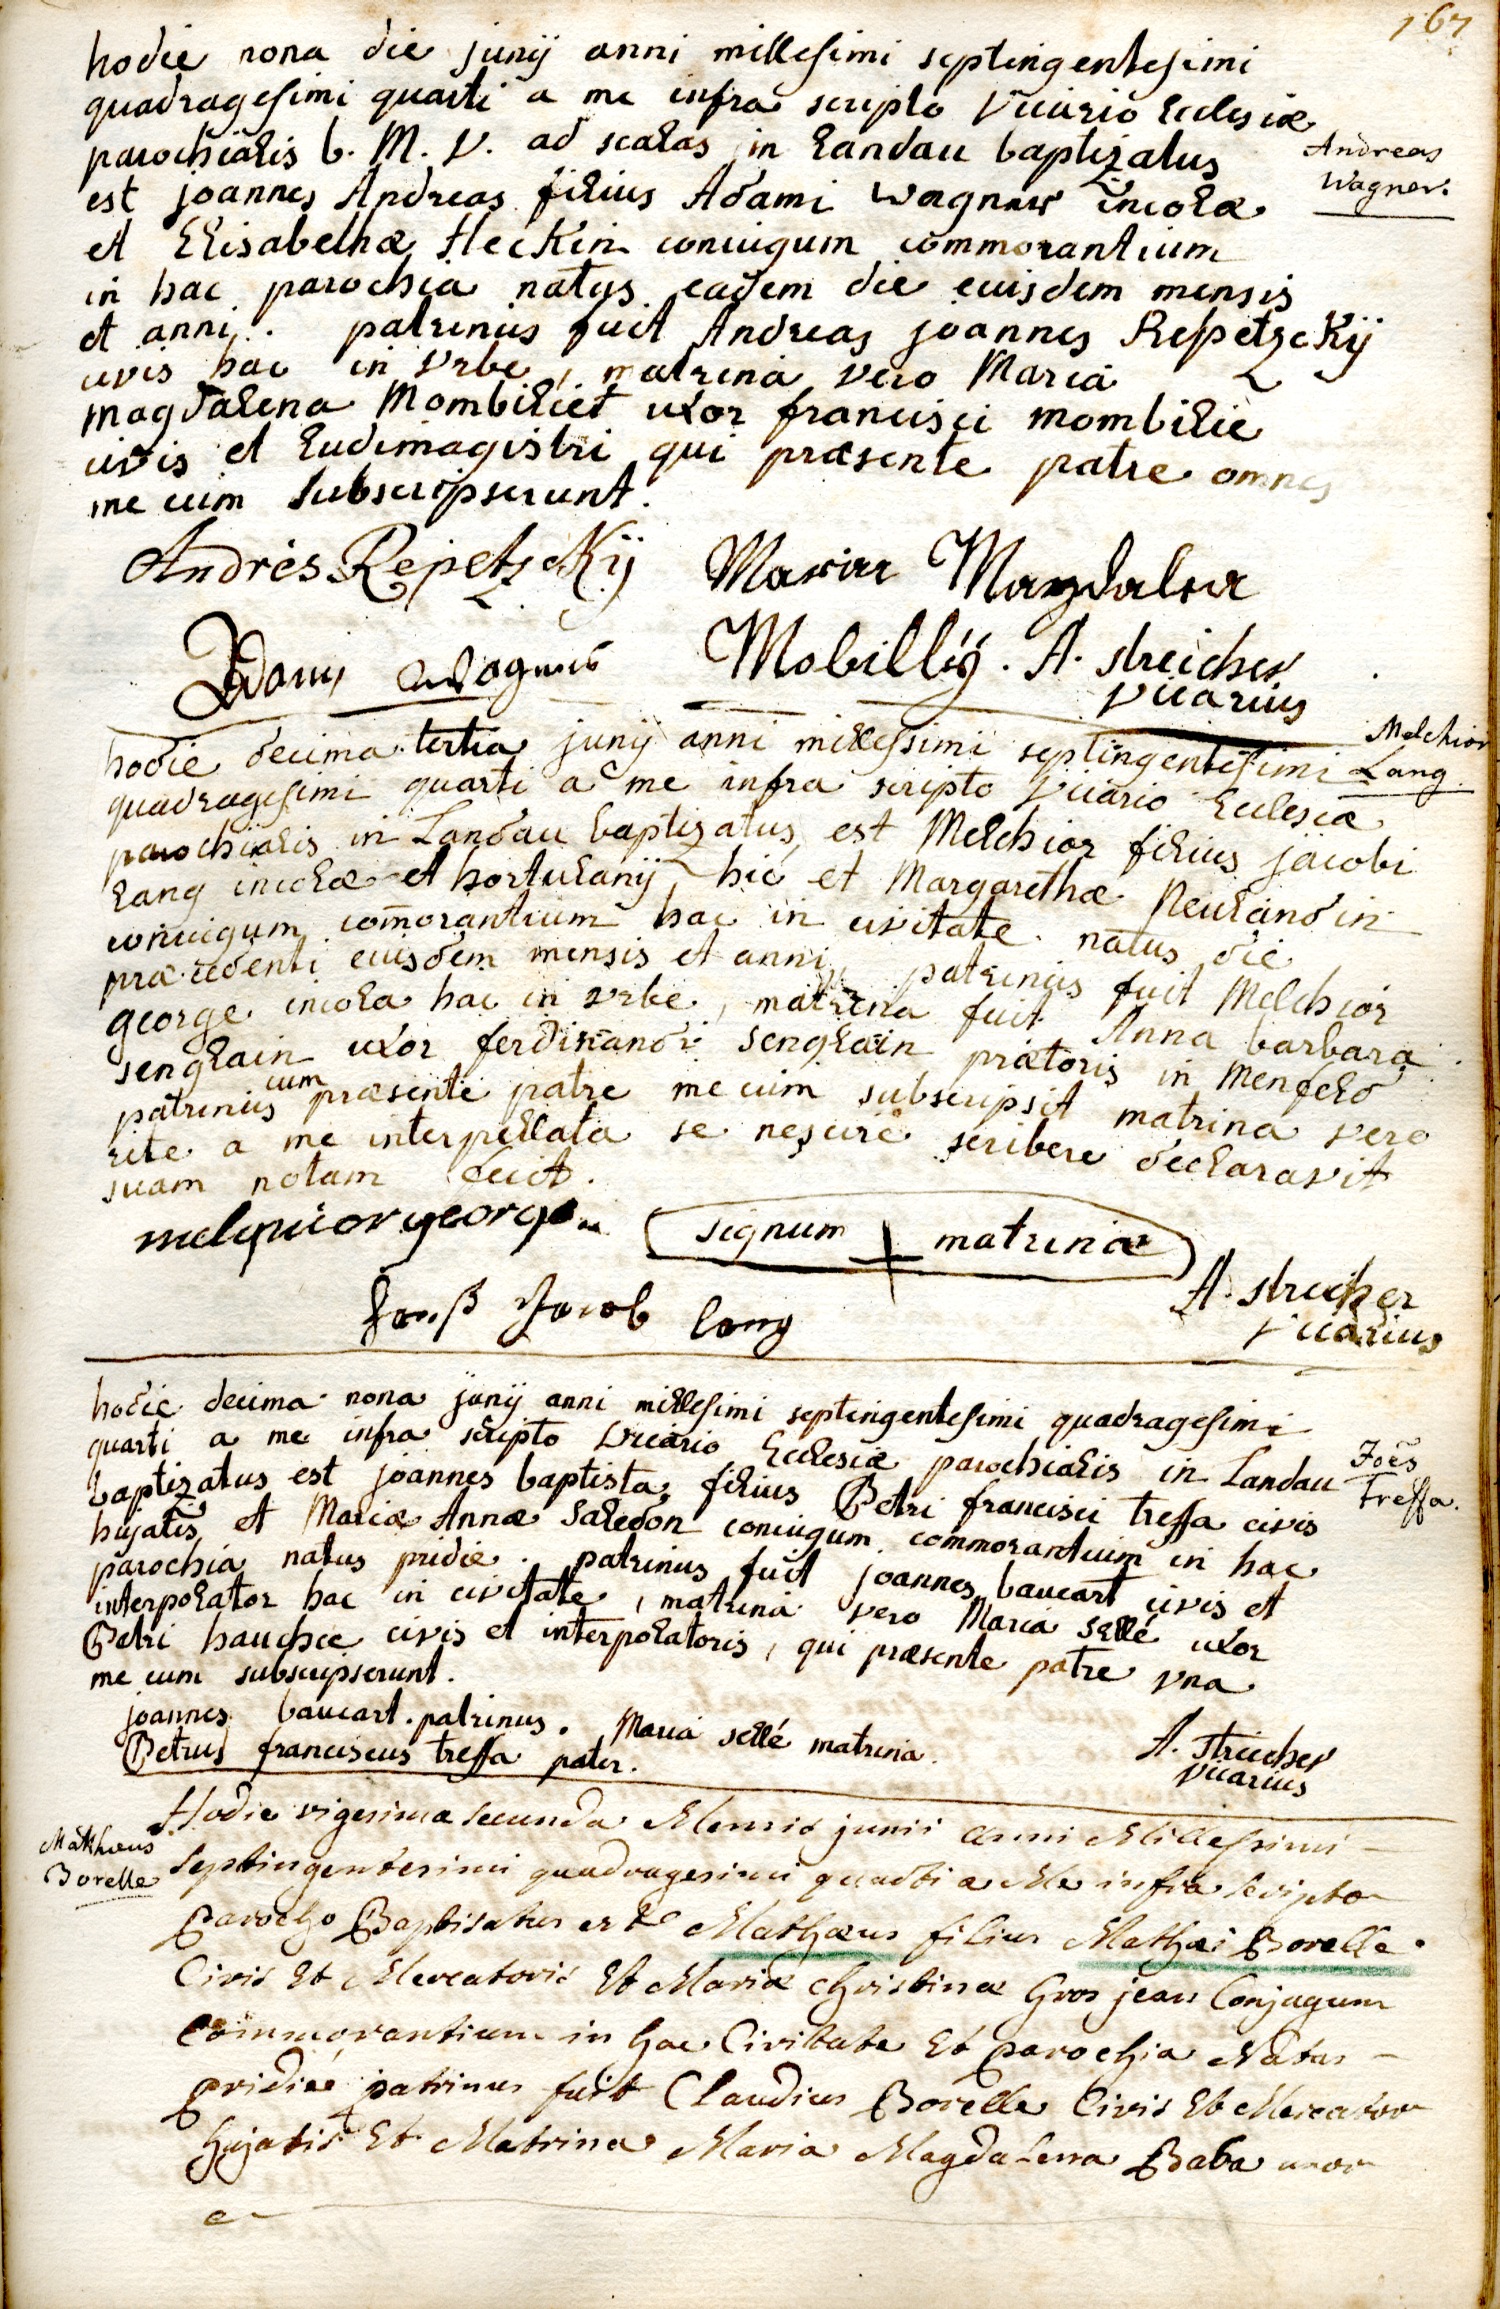 167
hodie nona die junij anni millesimi septingentesimi
quadragesimi quarti a me infra scripto Vicario Ecclesiæ
parochialis b. M. V. ad scalas in Landau baptizatus
Andreas
Wagner.
est joannes Andreas filius Adami Wagner incolæ
et Elisabethæ Heckin coniugum commorantium
in hac parochia natus eadem die eiusdem mensis
et anni. patrinus fuit Andreas joannes Repetzckij
civis hac in Vrbe, matrina vero Maria
Magdalena Mombiliet uxor francisci mombilie
civis et Ludimagistri qui præsente patre omnes
me cum subscripserunt.
Andres Repetzckij Maria Magdalena
Mobillÿ. A. streicher
vicarius
Adam Wagner
hodie decima tertia junij anni millessimi septingentesimi
Melchior
Lang
quadragesimi quarti a me infra scripto Vicario Ecclesiæ
parochialis in Landau baptizatus est Melchior filius jacobi
Lang incolæ et hortulanij hic et Margarethæ Neulandin
coniugum com̄orantium hac in civitate. natus die
præcedenti eiusdem mensis et anni patrinus fuit Melchior
george incola hac in Vrbe, matrina fuit Anna barbara
senglain uxor ferdinandi senglain prætoris in Menfeld
patrinus cum præsente patre me cum subscripsit matrina vero
rite a me interpellata se nescire scribere declaravit
suam notam fecit.
melchior george
signum + matrinæ
Hanß Jacob lang
A. streicher
vicarius
hodie decima nona junij anni millesimi septingentesimi quadragesimi
quarti a me infra scripto Vicario Ecclesiæ parochialis in Landau
Joēs
Treffa.
baptizatus est joannes baptista filius Petri francisci treffa civis
hujatis et Mariæ Annæ Saledon coniugum commorantium in hac
parochia natus pridie. patrinus fuit joannes baucart civis et
interpolator hac in civitate, matrina vero Maria sellé uxor
Petri hauchee civis et interpolatoris, qui præsente patre vna
me cum subscripserunt.
joannes baucart patrinus. Maria sellé matrina.
Petrus franciscus treffa pater.
A. streicher
vicarius
Mathæus
Borelle
Hodie vigesima secunda Mensis junii Anni Millessimi
septingentesimi quadragesimi quarti a Me infra scripto
Parocho Baptisatus est Mathæus filius Mathæi Borelle
Civis Et Mercatoris Et Mariæ Christinæ Gros jean Conjugum
Commorantium in hac Civitate Et parochia Natus
pridie patrinus fuit Claudius Borelle Civis Et Mercator
hujatis Et Matrina Maria Magdalena Baba uxor